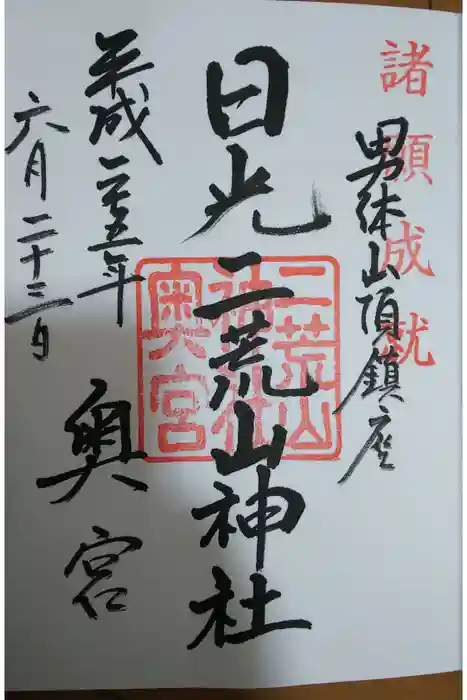 諸願成就
男体山頂鎮座
日光二荒山神社
二荒山
神社
奥宮
奥宮
平成二十五年
六月二十三日